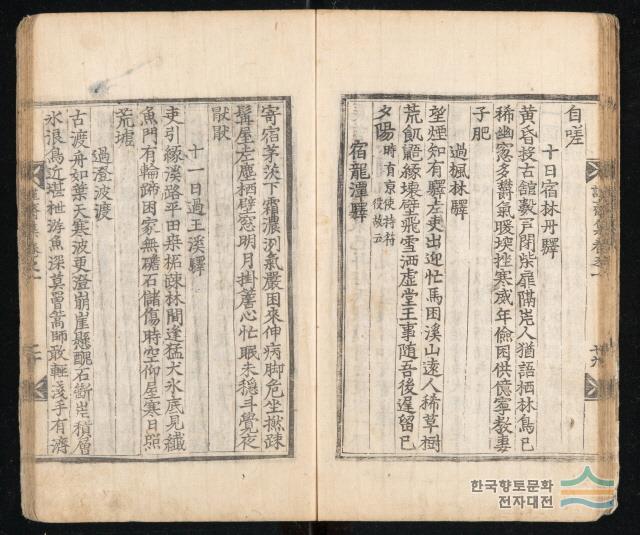 自嗟
十日宿林丹驛
黃昏投古館敲戶閉柴扉隔岸人猶語栖林鳥已
稀幽窓多欝氣暖埃挫寒威年儉困供億寧敎妻
子肥
過楓林驛
望煙知有驛左吏出迎忙馬困溪山遠人稀草樹
荒飢鼯緣壞壁飛雪洒虛堂王事隨吾後遲留已
夕陽時有京使持符後故云
宿龍潭驛
寄宿茅茨下霜濃冽氣嚴困來伸病脚危坐撚疎
髥屋左塵栖壁窓明月掛簷心忙眠未穩斗覺夜
猒猒
十一日過王溪驛
吏引緣溪路平田桒柘疎林間逢猛犬氷底見纖
魚門有輪蹄困家無甔石儲傷時空仰屋寒日照
荒墟
過澄波渡
古渡舟如葉天寒波更澄崩崖懸醜石斷岸積層
氷浪鳥近堪 游魚深莫罾篙師敢輕淺手有濟
한국향토문화
전자대전